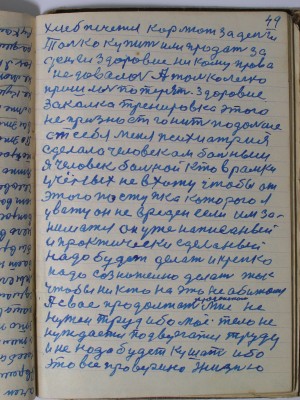 49
хлеб печеня кормот за деньги
Толко купит или продат за
денги здоровие никому права
не довалос А толко легко
пришлос потерят. здоровие
закалка тренировка этого
не признают гонит подалие
от себя меня психиатрия
сделало человеком болным
я человек болной кто в рамки
учёных не вхожу чтобы от
этого поступка которого я
увожу он не вреден если им за-
нимался он уже написаный
и практически сделаный
надо будет делат и крепко
надо сознателно делат так
чтобы никто на это не обижался
А свае продолжат мне не
нужен труд ибо моё тело не
нуждается подвергатся труду
и не надо будет кушат ибо
это все проверено жизнею